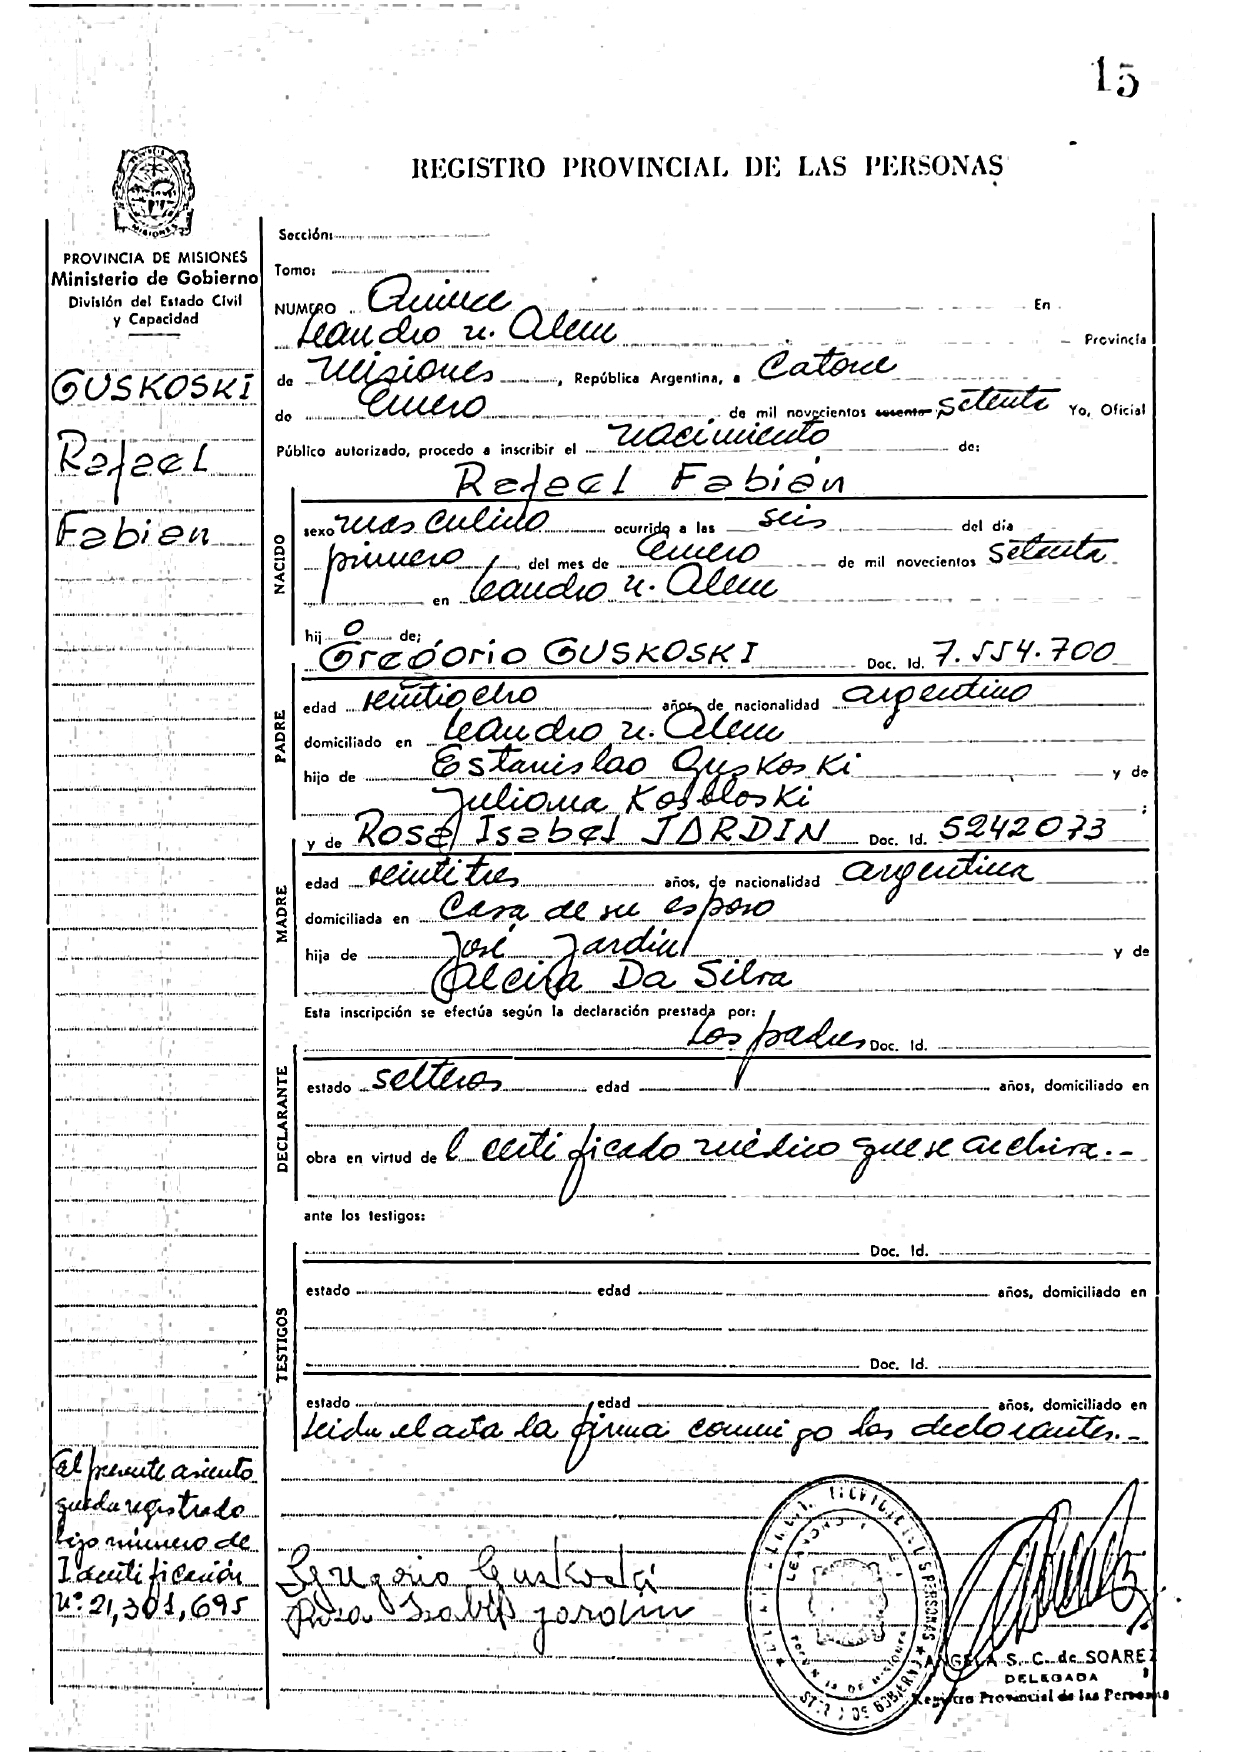 15
REGISTRO PROVINCIAL DE LAS PERSONAS
MISIONES
PROVINCIA DE MISIONES
Ministerio de Gobierno
División del Estado Civil
y Capacidad
GUSKOSKI
Rafael
Fabian
Sección:
Tomo:
NUMERO Quince En
Leandro N. Alem Provincia
de Misiones, República Argentina, a Catorce
de Enero de mil novecientos sesenta setenta Yo, Oficial
Público autorizado, procedo a inscribir el nacimiento de:
Rafael Fabián
NACIDO
sexo masculino ocurrido a las seis del día
primero, del mes de Enero de mil novecientos setenta
en Leandro N. Alem
hijo de:
Gregorio GUSKOSKI Doc. Id. 7.554.700
PADRE
edad veintiocho años, de nacionalidad argentino
domiciliado en Leandro N. Alem
hijo de Estanislao Guskoski y de
Juliana Kosbloski ;
y de Rosa Isabel JARDIN Doc. Id. 5242073
MADRE
edad veintitres años, de nacionalidad argentina
domiciliada en Casa de su esposo
hija de José Jardin y de
Alcira Da Silva
Esta inscripción se efectúa según la declaración prestada por:
Los padres Doc. Id.
DECLARANTE
estado solteros edad años, domiciliado en
obra en virtud del certificado médico que se archiva.-
ante los testigos:
Doc. Id.
TESTIGOS
estado edad años, domiciliado en
Doc. Id.
estado edad años, domiciliado en
Leida el acta la firma conmigo los declarantes.-
El presente asiento
queda registrado
bajo número de
Identificación
Nº 21,301,695
Gregorio Guskoski
Rosa Isabel jardin
ANGELA S. C. de SOAREZ
DELEGADA
Registro Provincial de las Personas